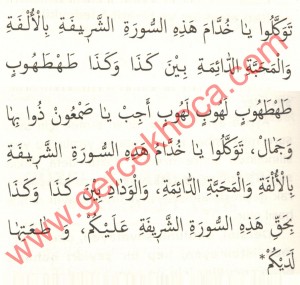 تَوَكَّلُوا يَا خُدَّامَ هَذِهِ السُّورَةِ الشَّرِيفَةِ بِالْأُلْفَةِ
وَالْمَحَبَّةِ الدَّائِمَةِ بِيْنَ كَذَا وَكَذَا طَهْطَهُوبٍ
طَهْطَهُوبٍ لَهُوبٍ لَهُوبٍ أَجِبْ يَا صَمْعُونُ ذُوا بِهَا
وَجَمَالْ، تَوَكَّلُوا يَا خُدَّامَ هَذِهِ السُّورَةِ الشَّرِيفَةِ
بِالْأُلْفَةِ وَالْمَحَبَّةِ الدَّائِمَةِ، وَالْوِدَادِ بَيْنَ كَذَا وَكَذَا
بِحَقِّ هَذِهِ السُّورَةِ الشَّرِيفَةِ عَلَيْكُمْ، وَ طَاعَتِهَا
لَدَيْكُمْ*
www.gercekhoca.com